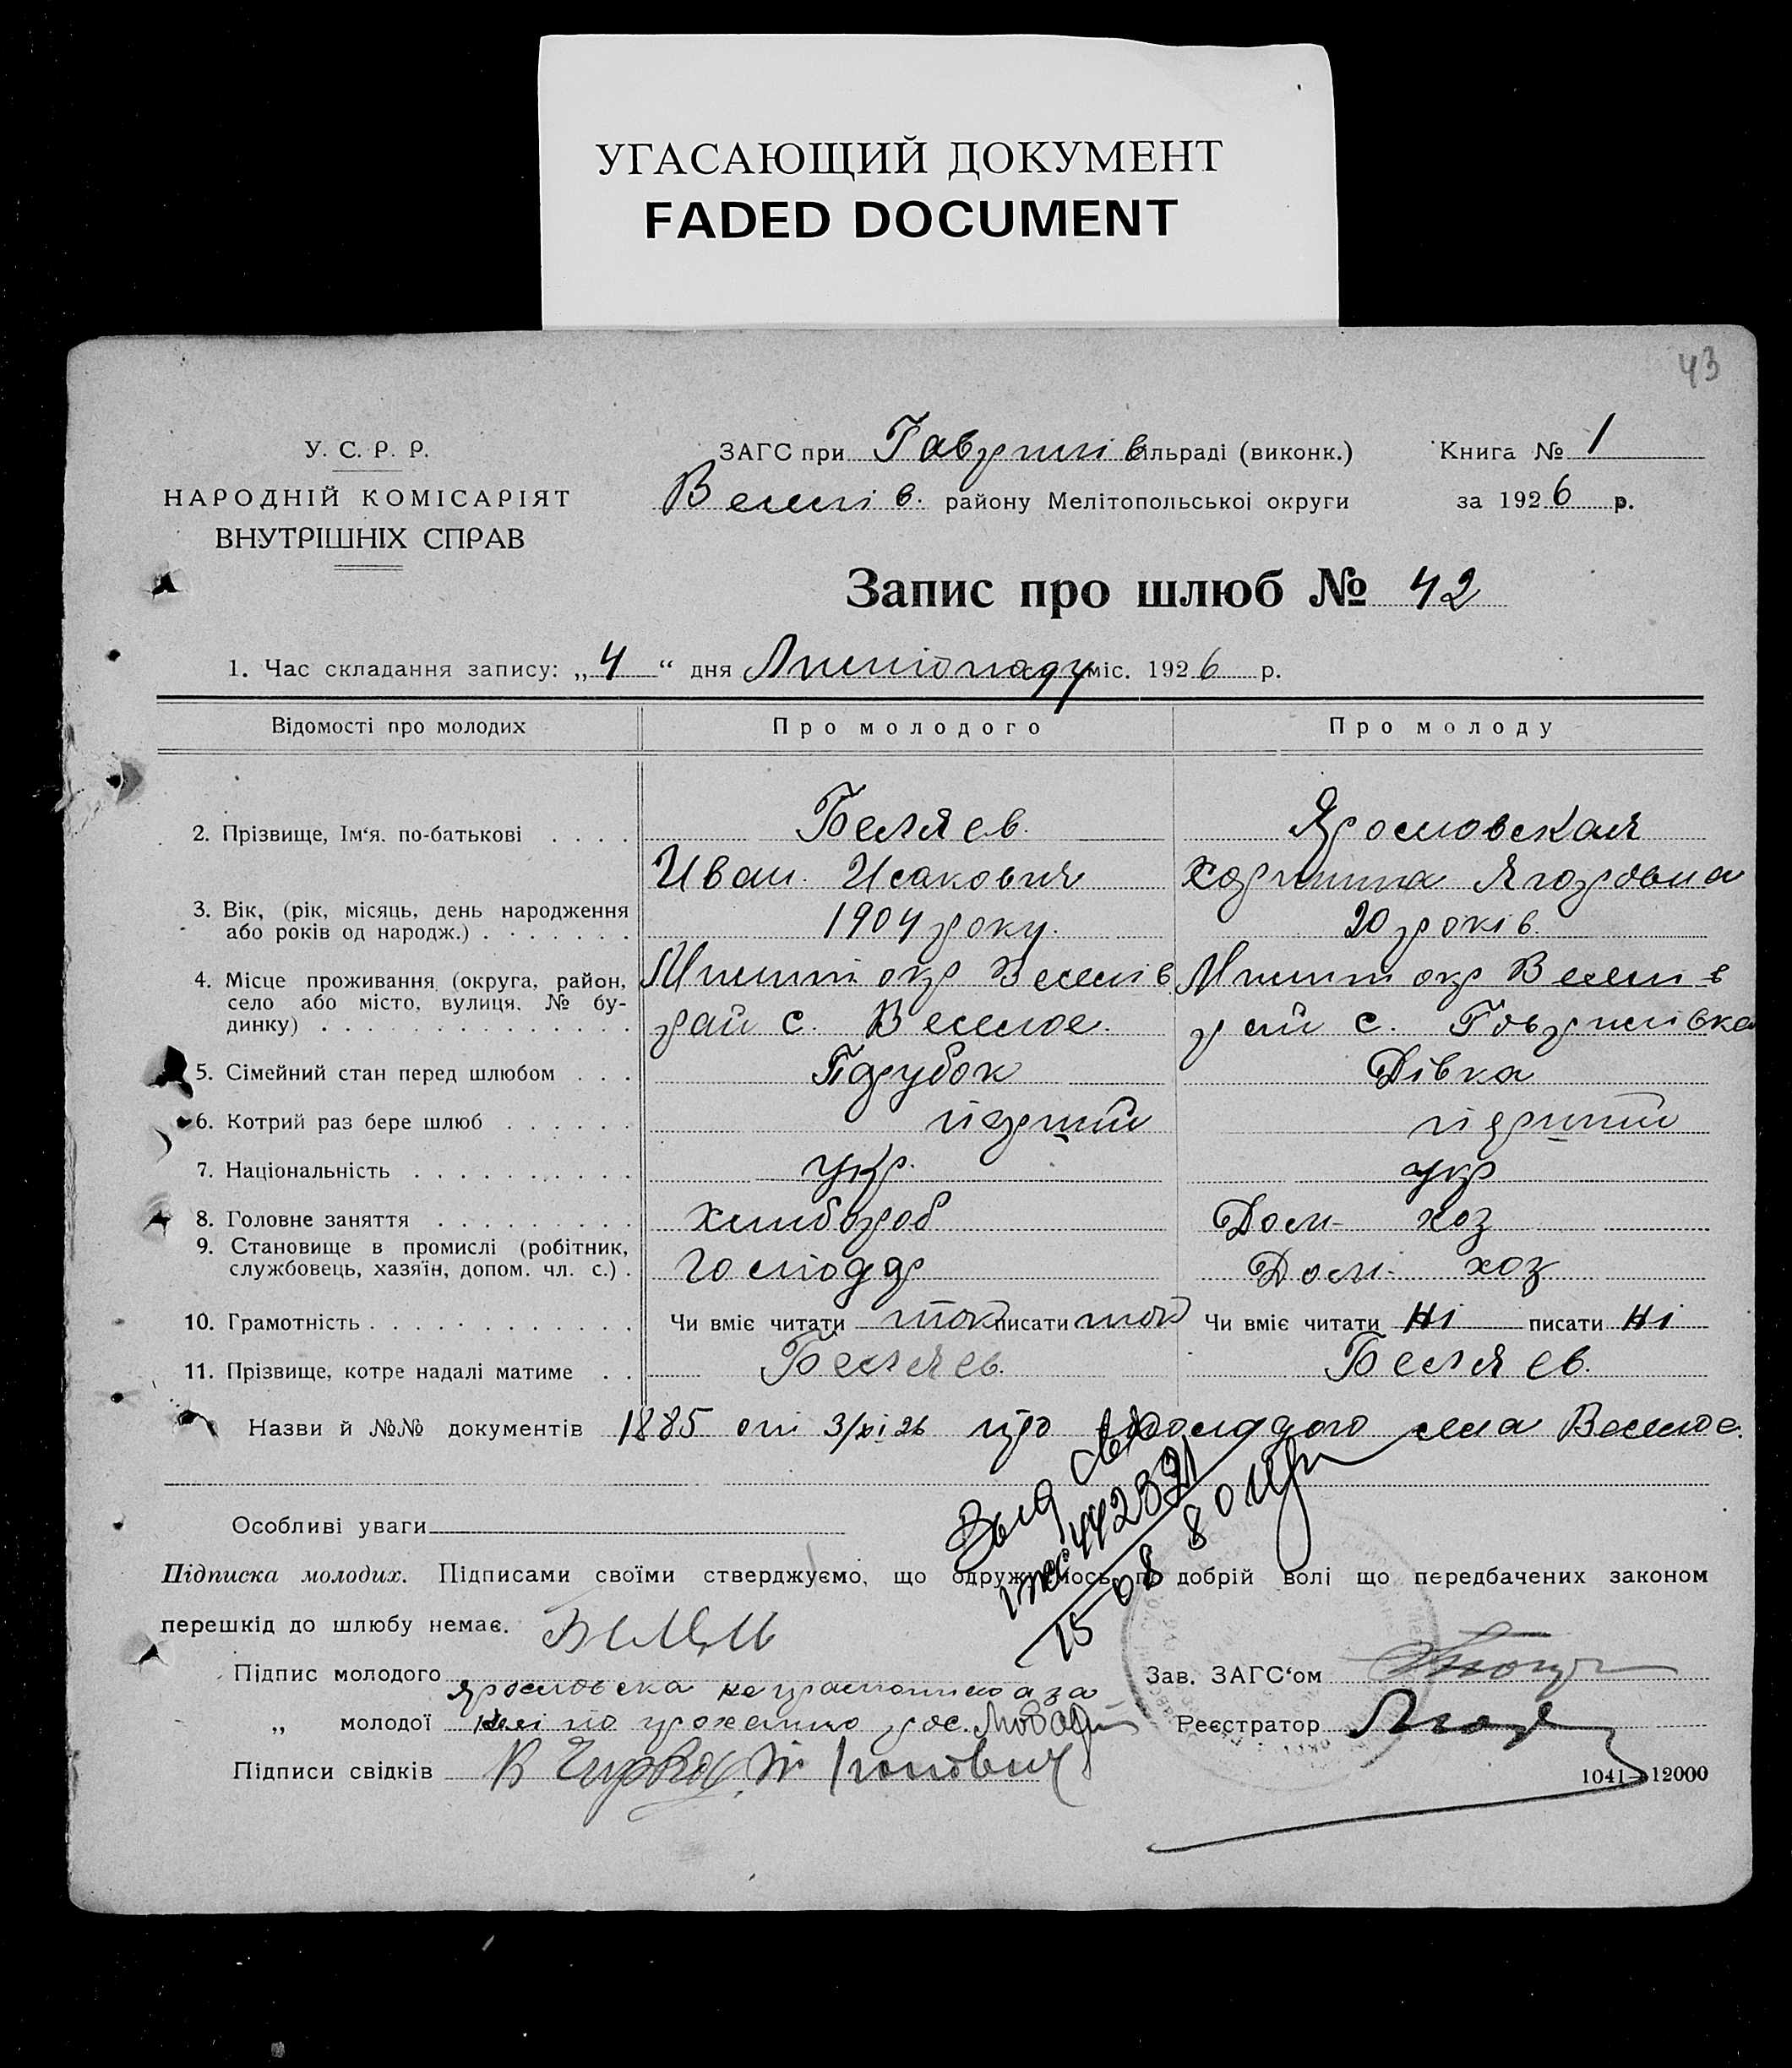 УГАСАЮЩИЙ ДОКУМЕНТ
FADED DOCUMENT
43
У. С. Р. Р.
НАРОДНІЙ КОМІСАРІЯТ
ВНУТРІШНІХ СПРАВ
ЗАГС при Гавришівільраді (виконк.)
Веселів. району Мелітопольськоі округи
Книга № 1
за 1926 р.
Запис про шлюб № 42
1. Час складання запису: „4“ дня Листопаду міс. 1926 р.
Відомості про молодих
Про молодого
Про молоду
2. Прізвище, Ім‘я. по-батькові
Беляев
Иван Исакович
Ярословская
3. Вік, (рік, місяць, день народження
або років од народж.)
1904 року.
20 років
4. Місце проживання (округа, район,
село або місто, вулиця. № бу-
динку)
окр Веселів
рай с. Веселое.
окр Веселів
рай с.
5. Сімейний стан перед шлюбом
Парубок
Дівка
6. Котрий раз бере шлюб
перший
перший
7. Національність
укр.
укр
8. Головне заняття
хлибороб
Дом- хоз
9. Становище в промислі (робітник,
службовець, хазяїн, допом. чл. с.)
господар
Дом- хоз
10. Грамотність
Чи вміє читати так писати так
Чи вміє читати Ні писати Ні
11. Прізвище, котре надалі матиме
Беляев.
Беляев.
Назви й №№ документів 1885 от 3/XI 26 про молодого села Веселое.
Особливі уваги
Підписка молодих. Підписами своїми стверджуємо, що одружуємось по добрій волі що передбачених законом
перешкід до шлюбу немає.
Підпис молодого
„ молодої
Підписи свідків
Зав. ЗАГС‘ом
Реєстратор
1041—12000